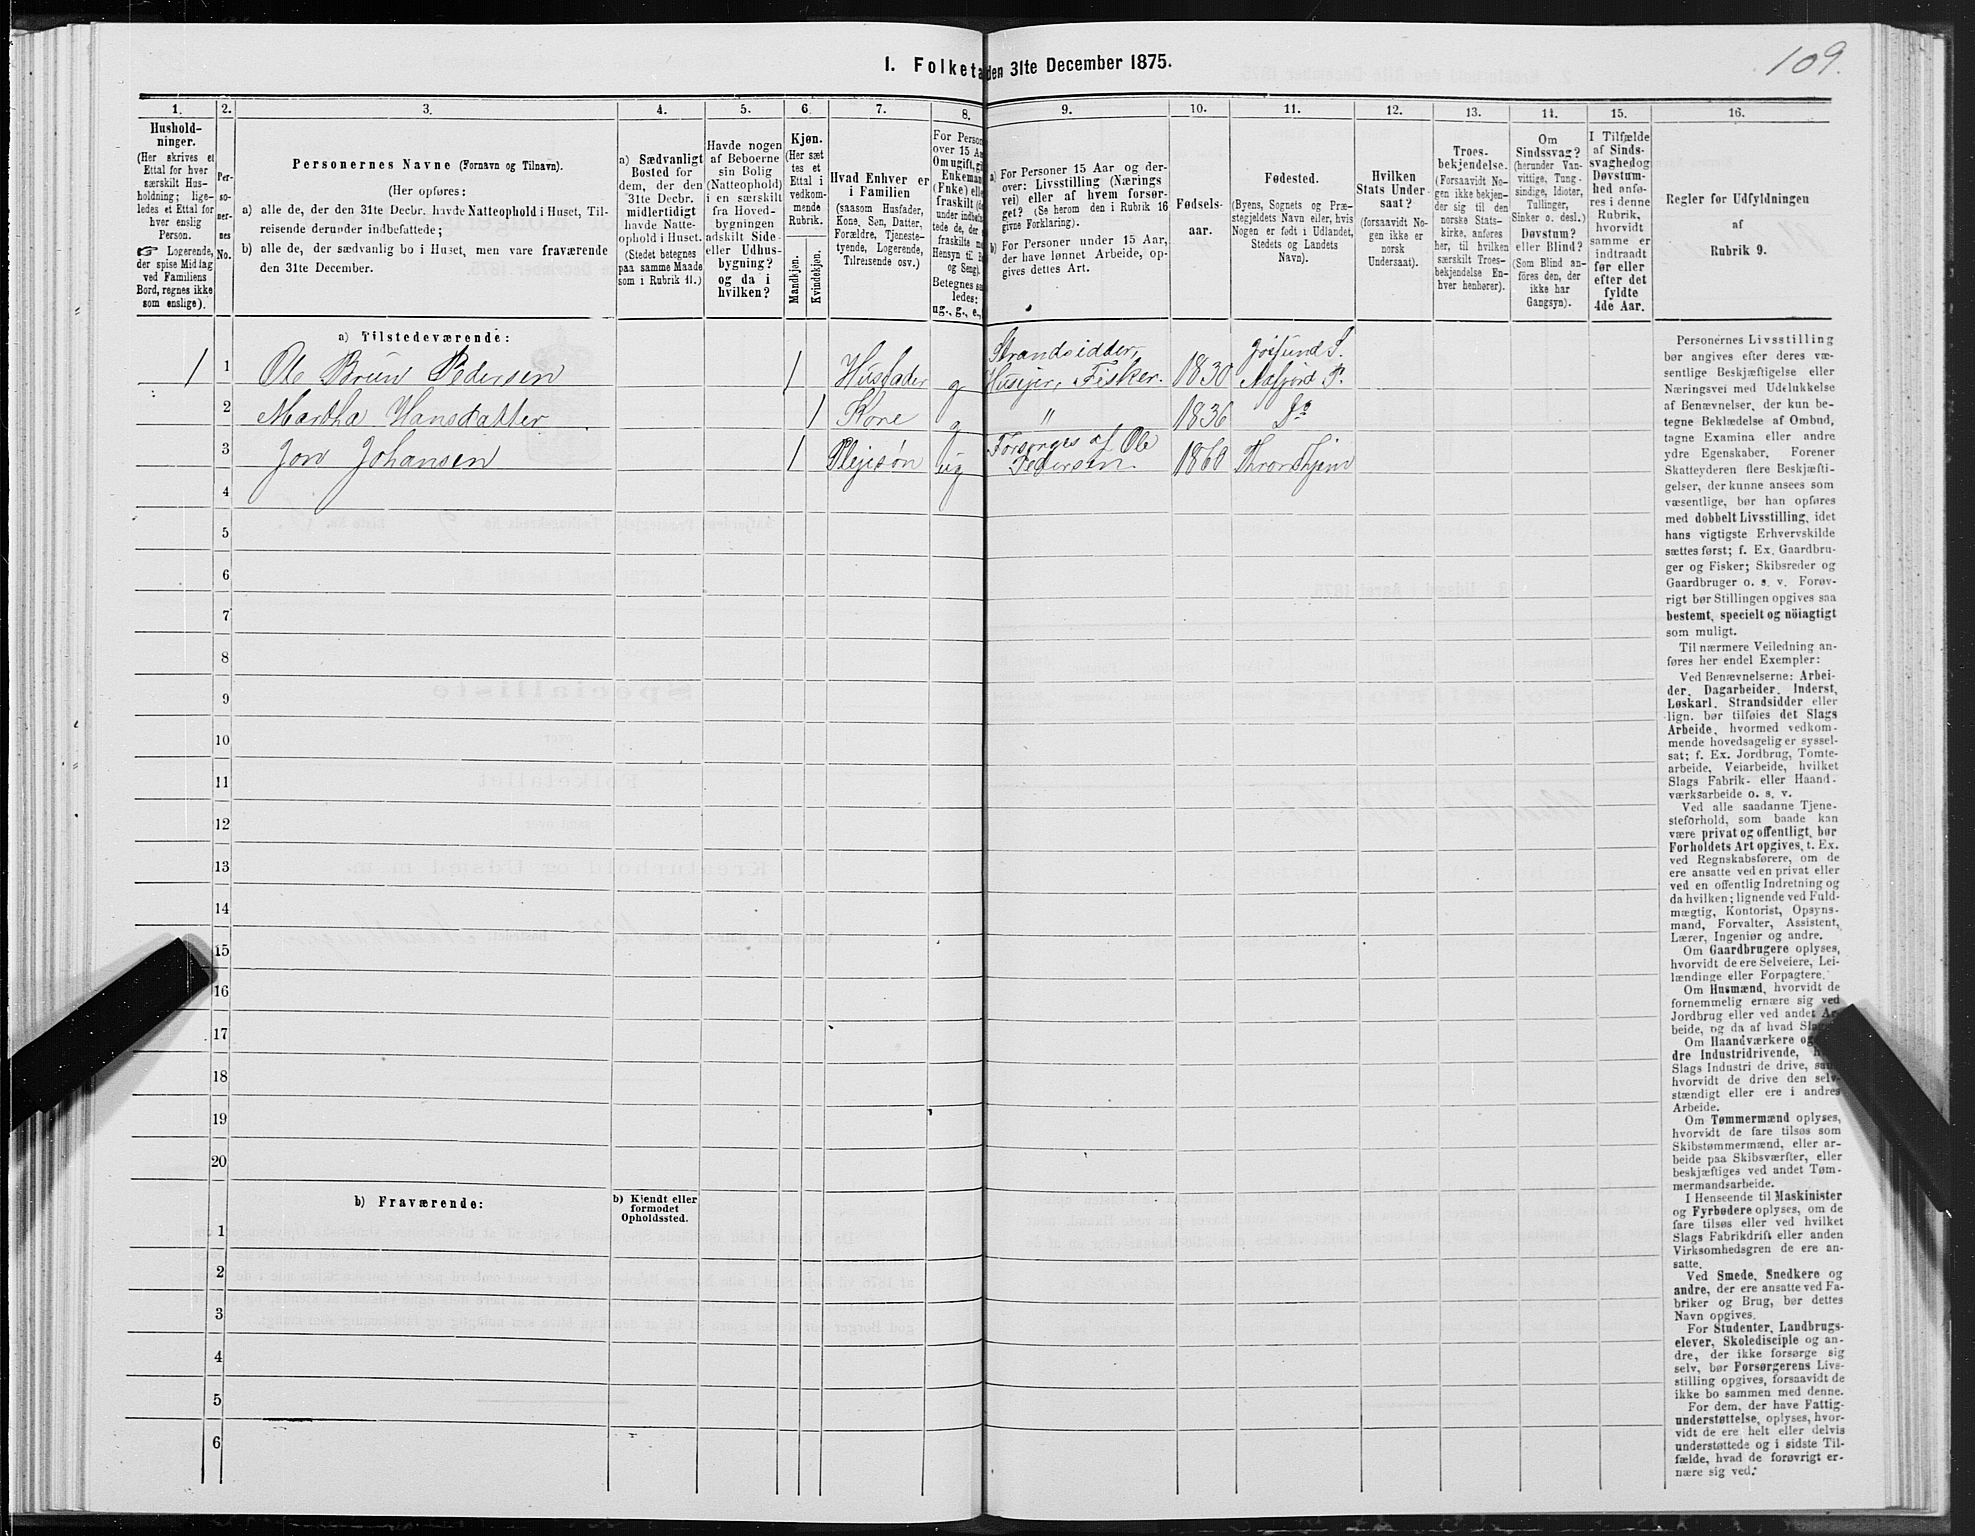 109.
I. Folketa den 31te December 1875.
1. 2. 3. 4. 5. 6. 7. 8. 9. 10. 11. 12. 13. 14. 15. 16.
Hushold-
ninger.
(Her skrives et
Ettal for hver
særskilt Hus-
holdning; lige-
ledes et Ettal for
hver enslig
Person.
☞ Logerende,
der spise Middag
ved Familiens
Bord, regnes ikke
som enslige).
Per-
so-
ner-
nes
No.
Personernes Navne (Fornavn og Tilnavn).
(Her opføres:
a) alle de, der den 31te Decbr. havde Natteophold i Huset, Til-
reisende derunder indbefattede;
b) alle de, der sædvanlig bo i Huset, men vare fraværende
den 31te December.
a) Sædvanligt
Bosted for
dem, der den
31te Decbr.
midlertidigt
havde Natte-
ophold i Huset.
(Stedet betegnes
paa samme Maade
som i Rubrik 11.)
Havde nogen
af Beboerne
sin Bolig
(Natteophold)
i en særskilt
fra Hoved-
bygningen
adskilt Side-
eller Udhus-
bygning?
og da i
hvilken?
Kjøn.
(Her sæt
tes et
Ettal i
vedkom-
mende
Rubrik.
Mandkjøn.
Kvindekjøn.
Hvad Enhver er
i Familien
(saasom Husfader,
Kone, Søn, Datter,
Forældre, Tjeneste-
tyende, Logerende,
Tilreisende osv.)
For Person
over 15 Aa
Om ugift, gi
Enkeman
(Fnke) elle
fraskilt (
under indbef
tede de, der
fraskilte m
Hensyn til B
og Seng).
Betegnes sa
ledes:
ug., g., e.,
a) For Personer 15 Aar og der-
over: Livsstilling (Nærings
vei) eller af hvem forsør-
get? (Se herom den i Rubrik 16
givne Forklaring).
b) For Personer under 15 Aar,
der have lønnet Arbeide, op-
gives dettes Art.
Fødsels-
aar.
Fødested.
(Byens, Sognets og Præ-
stegjeldets Navn eller, hvis
Nogen er født i Udlandet,
Stedets og Landets
Navn).
Hvilken
Stats Under-
saat?
(forsaavidt No-
gen ikke er
norsk
Undersaat).
Troes-
bekjendelse.
(Forsaavidt No-
gen ikke bekjen-
der sig til den
norske Stats-
kirke, anføres
her, til hvilken
særskilt Troes-
bekjendelse En-
hver henhører).
Om
Sindssvag?
(herunder Van-
vittige, Tung-
sindige, Idioter,
Tullinger,
Sinker o. desl.)
Døvstum?
eller Blind?
(Som Blind an-
føres den, der
ikke har
Gangsyn).
I Tilfælde
af Sinds-
svaghed og
Døvstum-
hed anfø-
res i denne
Rubrik,
hvorvidt
samme er
indtraadt
før eller
efter det
fyldte
4de Aar.
Regler før Udfyldningen
af
Rubrik 9.
a) Tilstedeværende:
1 1 Ole Brun Pedersen 1 Husfader g Strandsidder, Huseier, Fisker. 1830 Jøssund S. Aafjord P.
2 Martha Hansdatter 1 Kone g " 1836 Do
3 Jon Johansen 1 Plejesøn ug Forsørges af Ole Pedersen. 1860 Throndhjem
4
5
6
7
8
9
10
11
12
13
14
15
16
17
18
19
20
b) Fraværende:
b) Kjendt eller
formodet
Opholdssted.
1
2
3
4
5
6
Personernes Livsstilling
bør angives efter deres væ-
sentlige Beskjæftigelse eller
Næringsvei med Udelukkelse
af Benævnelser, der kun be-
tegne Beklædelse af Ombud,
tagne Examina eller andre
ydre Egenskaber. Forener
Skatteyderen flere Beskjæfti-
gelser, der kunne ansees som
væsentlige, bør han opføres
med dobbelt Livsstilling, idet
hans vigtigste Erhvervskilde
sættes først; f. Ex. Gaardbru-
ger og Fisker; Skibsreder og
Gaardbruger o. s. v. Forøv-
rigt bør Stillingen opgives saa
bestemt, specielt og nöiagtigt
som muligt.
Til nærmere Veiledning an-
føres her endel Exempler:
Ved Benævnelserne: Arbei-
der, Dagarbeider, Inderst,
Løskarl, Strandsidder eller
lign. bør tilføies det Slags
Arbeide, hvormed vedkom-
mende hovedsagelig er syssel-
sat; f. Ex. Jordbrug, Tomte-
arbeide, Veiarbeide, hvilket
Slags Fabrik- eller Haand-
værksarbeide o. s. v.
Ved alle saadanne Tjene-
steforhold, som baade kan
være privat og offentligt, bør
Forholdets Art opgives, t. Ex.
ved Regnskabsførere, om de
ere ansatte ved en privat eller
ved en offentlig Indretning og
da hvilken; lignende ved Fuld-
mægtig, Kontorist, Opsyns-
mand, Forvalter, Assistent,
Lærer, Ingeniør og andre.
Om Gaardbrugere oplyses,
hvorvidt de ere Selveiere, Lei-
lændinge eller Forpagtere.
Om Husmænd, hvorvidt de
fornemmelig ernære sig ved
Jordbrug eller ved andet Ar-
beide, og da af hvad Slags
Om Haandværkere og
dre Industridrivende,
Slags Industri de drive, sa
hvorvidt de drive den selv-
stændigt eller ere i andres
Arbeide.
Om Tømmermænd oplyses,
hvorvidt de fare tilsøs som
Skibstømmermænd, eller ar-
beide paa Skibsværfter, eller
beskjæftiges ved andet Tøm-
mermandsarbeide.
I Henseende til Maskinister
og Fyrbødere oplyses, om de
fare tilsøs eller ved hvilket
Slags Fabrikdrift eller anden
Virksomhedsgren de ere an-
satte.
Ved Smede, Snedkere og
andre, der ere ansatte ved Fa-
briker og Brug, bør dettes
Navn opgives.
For Studenter, Landbrugs-
elever, Skoledisciple og an-
dre, der ikke forsørge sig
selv, bør Forsørgerens Livs-
stilling opgives, forsaavidt de
ikke bo sammen med denne.
For dem, der have Fattig-
understøttelse, oplyses, hvor-
vidt de ere helt eller delvis
understøttede og i sidste Til-
fælde, hvad de forøvrigt er-
nære sig ved.